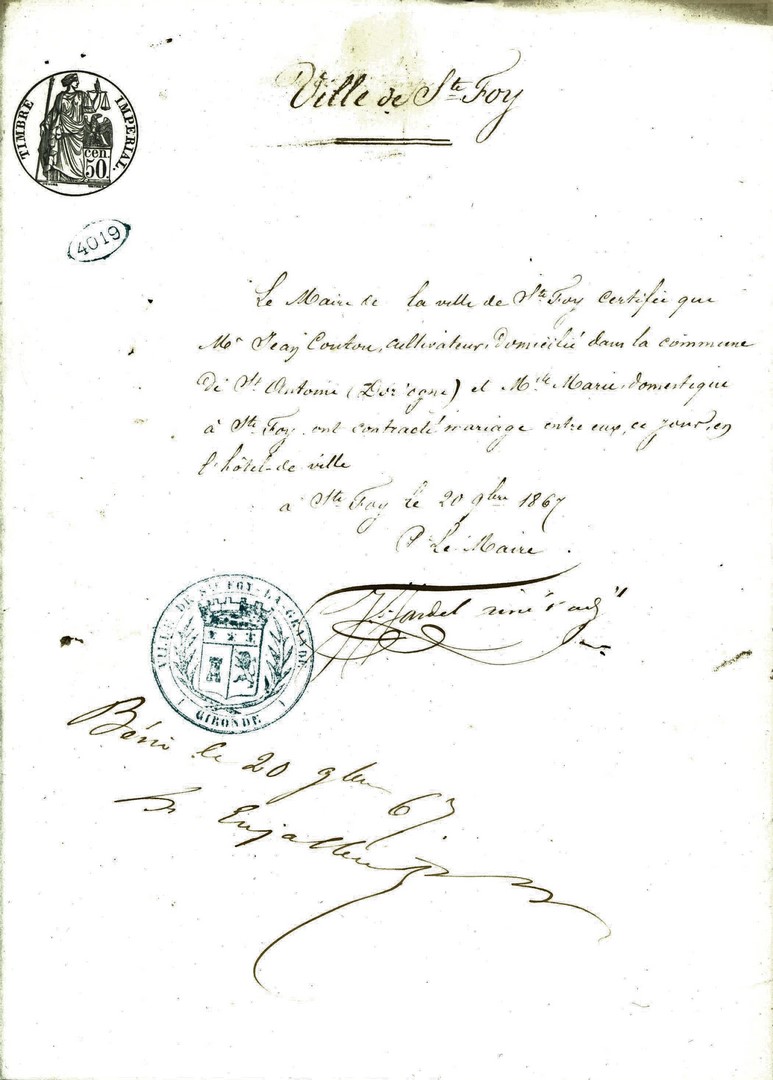 Ville de Ste Foy
TIMBRE IMPERIAL.
50 cen.
4019
Le Maire de la ville de Ste Foy certifie que
Mr Jean Couton, cultivateur, domicilié dans la commune
de St Antoine (Dordogne) et Mlle Marie, domestique
à Ste Foy, ont contracté mariage entre eux, ce jour, en
l'hôtel-de-ville
à Ste Foy le 20 9bre 1867
Pr Le Maire
VILLE DE STE FOY-LA-GRANDE
GIRONDE
Béni le 20 9bre 67